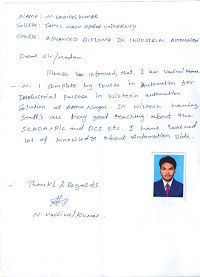 NAME: M. VADIVELKUMAR
COLLEGE: TAMIL NADU OPEN UNIVERSITY
COURSE: ADVANCED DIPLOMA IN INDUSTRIAL AUTOMATION
Dear Sir/madam.
Please be informed, that I am Vadivel Kumar
. N. I complete by Course in Automation for
Industrial purpose in Wisteen automation
Solution at Anna Nagar. In Wisteen having
Staff's are very good teaching about the
SCADA, PLC and DCS ETC. I have learned
lot of knowledge about Automation Side.
Thanks & Regards
N. Vadivel Kumar.